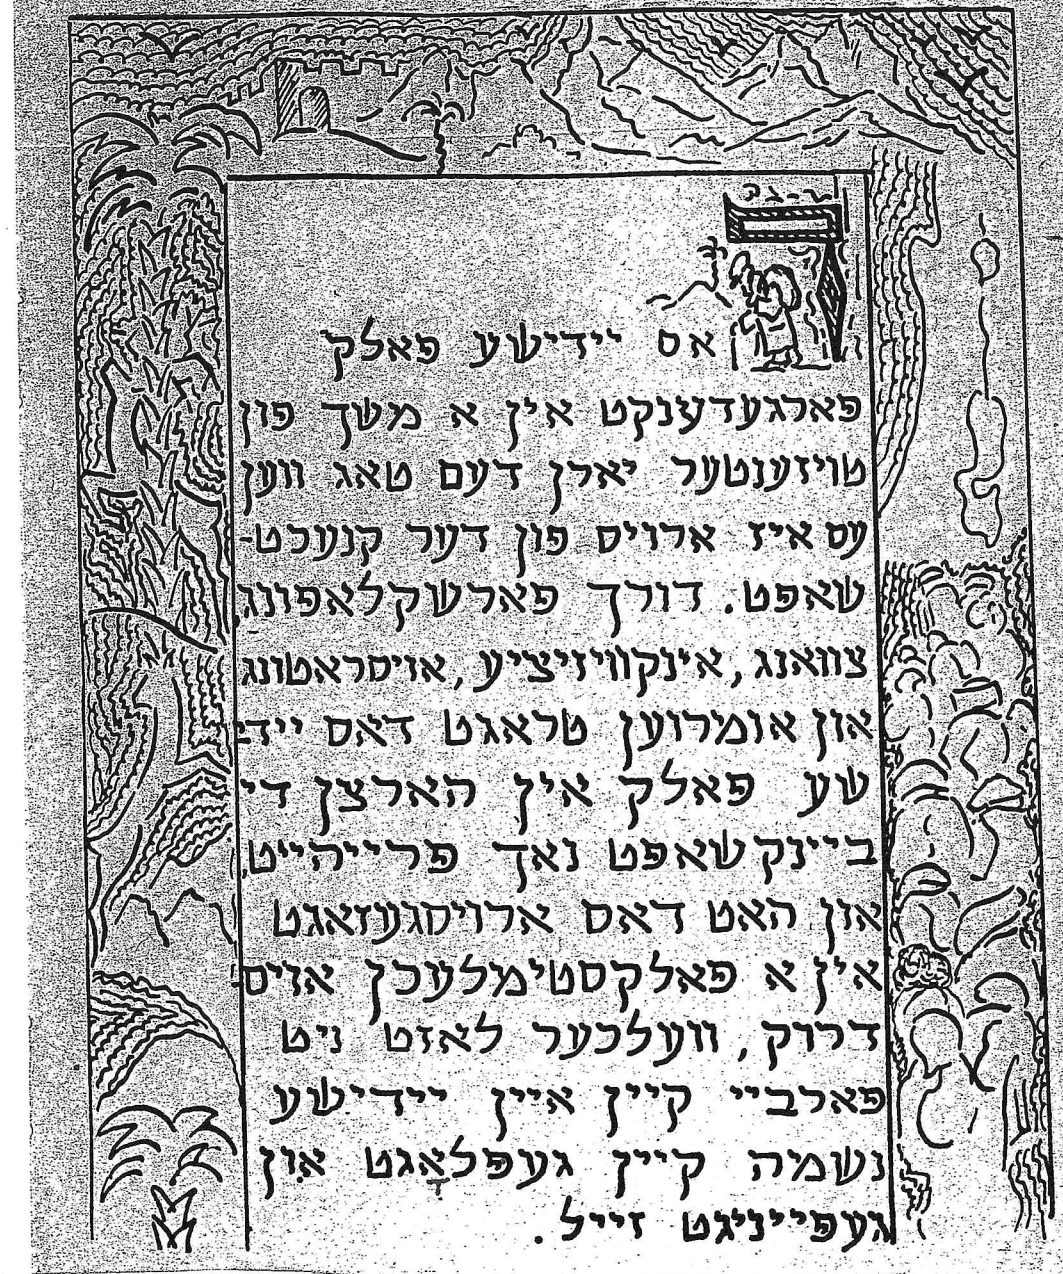 דאס יידישע פאלק
פארגעדענקט אין א משך פון
טויזענטער יארן דעם טאג ווען
עס איז ארויס פון דער קנעכט-
שאפט. דורך פארשקלאפונג,
צוואנג, אינקוויזיציע, אויסראטונג
און אומרוען טראגט דאס יידי-
שע פאלק אין הארצן די
ביינקשאפט נאך פרייהייט,
און האט דאס ארויסגעזאגט
אין א פאלקסטימלעכן אויס-
דרוק, וועלכער לאזט ניט
פארביי קיין איין יידישע
נשמה קיין געפלאָגט און
געפייניגט זייל.